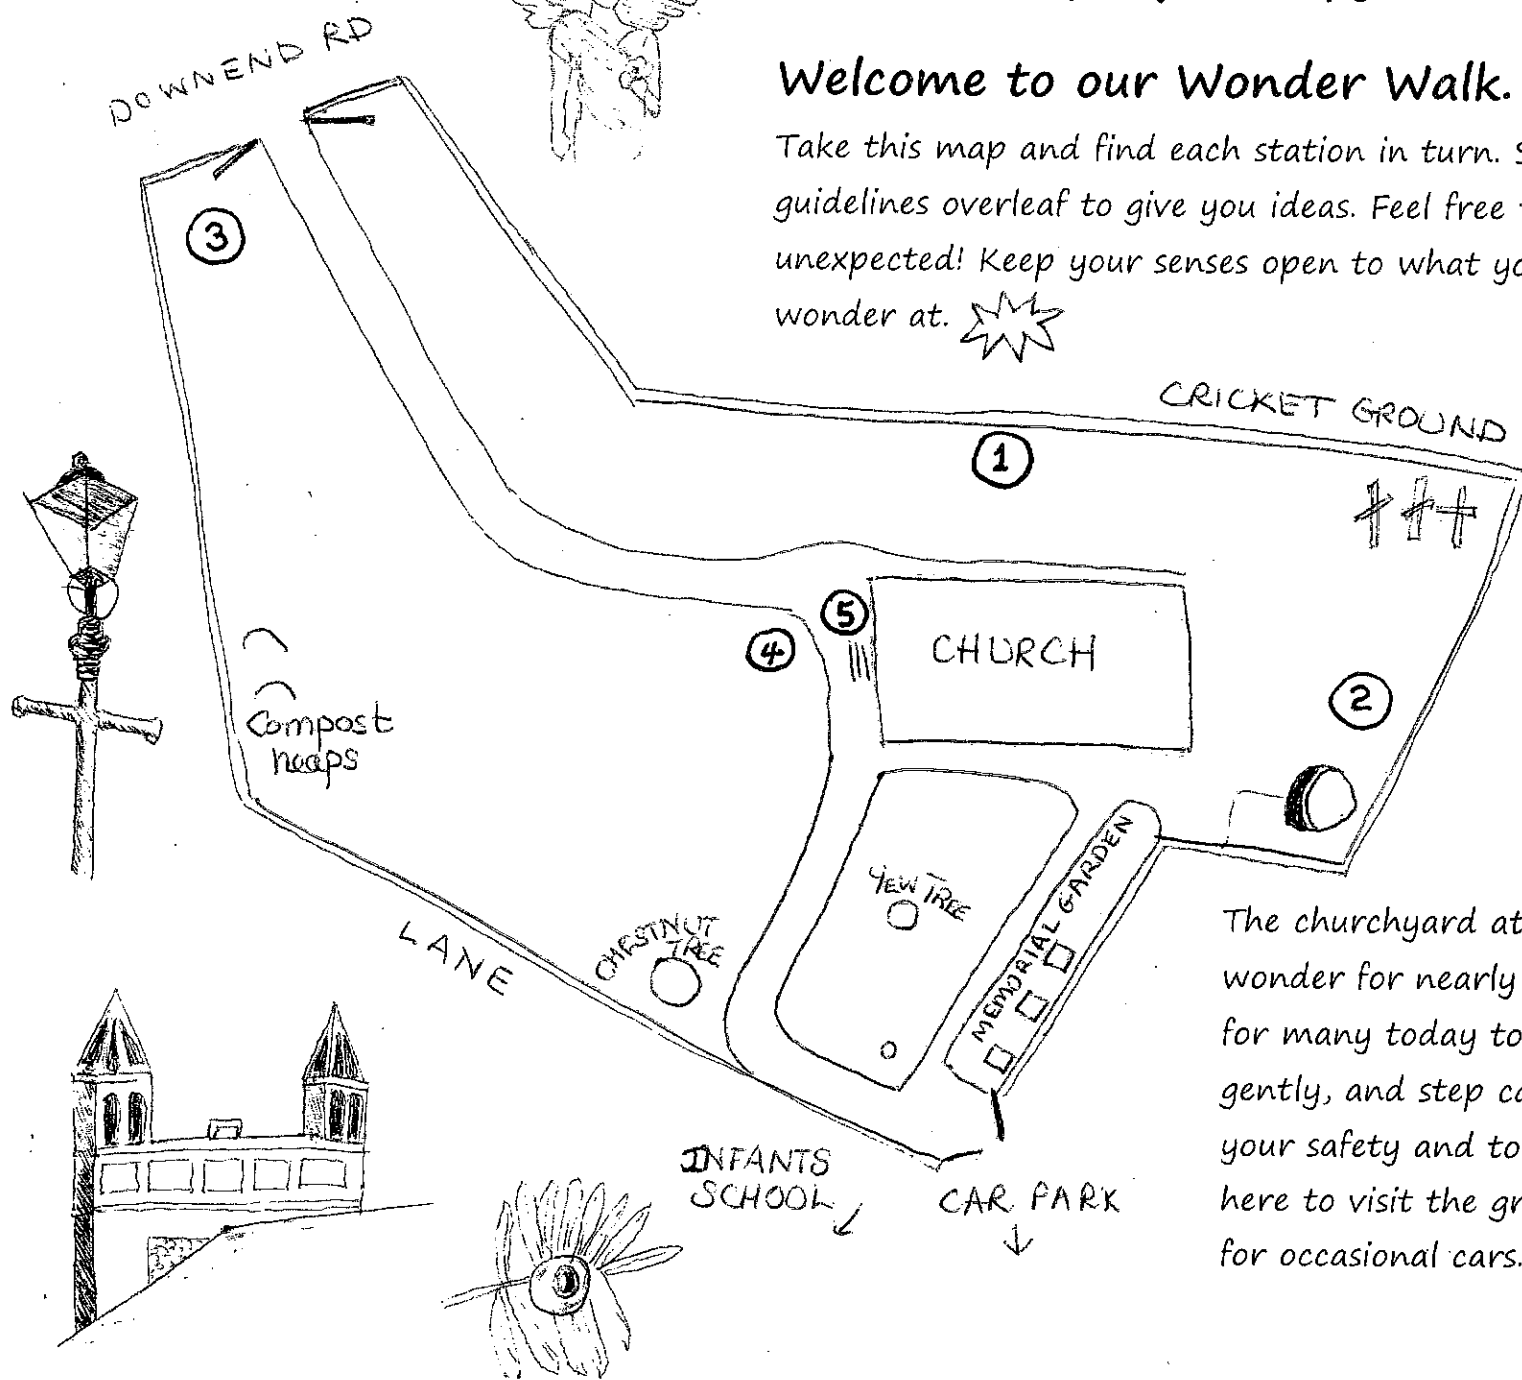 DOWNEND RD
Welcome to our Wonder Walk.
Take this map and find each station in turn. S
guidelines overleaf to give you ideas. Feel free
unexpected! Keep your senses open to what yo
wonder at.
CRICKET GROUND
3
1
5
4
CHURCH
2
Compost
heaps
YEW TREE
MEMORIAL GARDEN
CHESTNUT
TREE
LANE
The churchyard at
wonder for nearly
for many today to
gently, and step ca
your safety and to
here to visit the gr
for occasional cars.
INFANTS
SCHOOL
CAR PARK